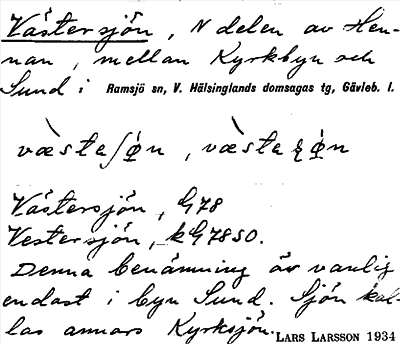 Västersjön, N delen av Hen-
nan, mellan Kyrkbyn och
Sund i Ramsjö sn, V. Hälsinglands domsagas tg, Gävleb. l.
Västersjön, G78
Vestersjön, kG78SO.
Denna benämning är vanlig
endast i byn Sund. Sjön kal-
las annars Kyrksjön.
LARS LARSSON 1934